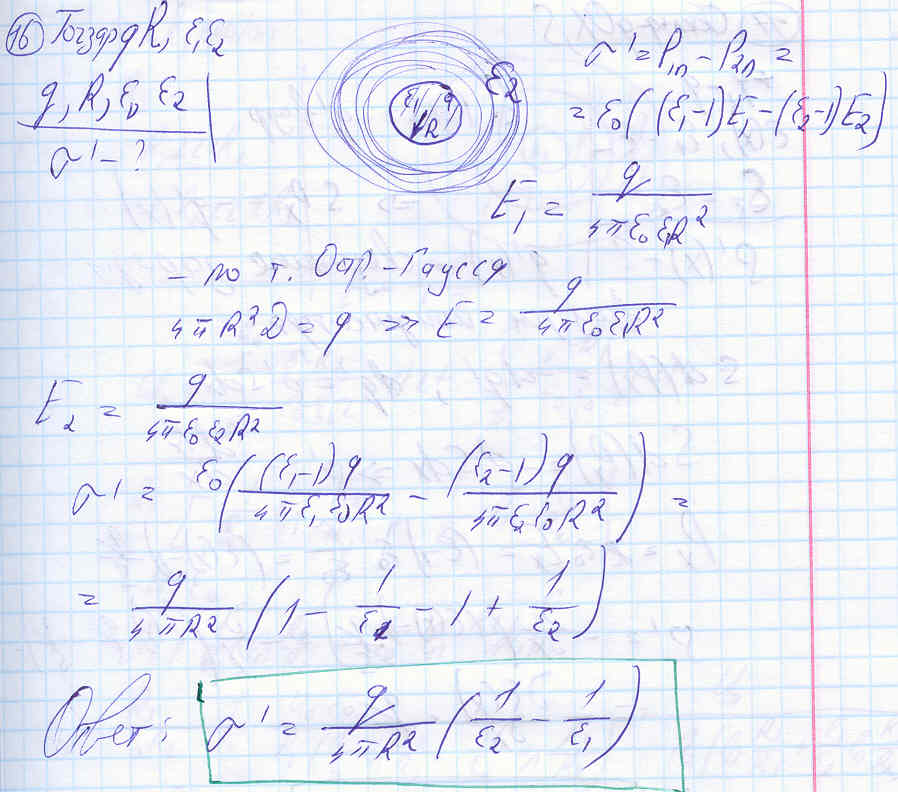 16
q R, ε₁ ε₂
q, R, ε₁, ε₂
σ' - ?
ε₁ q
R
ε₂
σ' = P₁ₙ - P₂ₙ =
= ε₀((ε₁-1)E₁ - (ε₂-1)E₂)
E₁ = q / 4πε₀ε₁R²
- по т. Остр.-Гаусса
4πR²D = q => E = q / 4πε₀ε₁R²
E₂ = q / 4πε₀ε₂R²
σ' = ε₀((ε₁-1)q / 4πε₁ε₀R² - (ε₂-1)q / 4πε₂ε₀R²) =
= q / 4πR² (1 - 1/ε₁ - 1 + 1/ε₂)
Ответ: σ' = q / 4πR² (1/ε₂ - 1/ε₁)